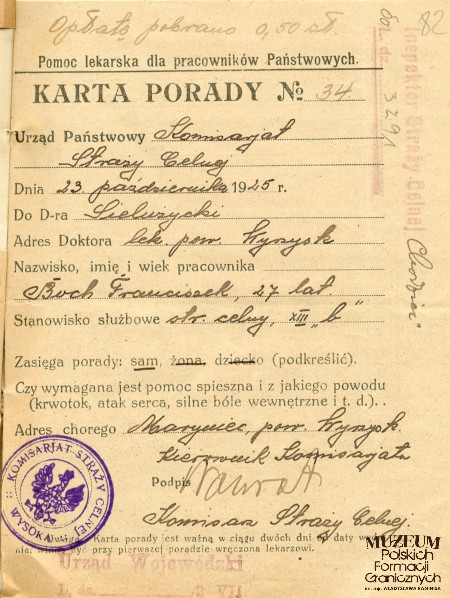 82
Opłatę pobrano 0,50 zł.
Pomoc lekarska dla pracowników Państwowych.
KARTA PORADY № 34
Inspektor Straży Celnej
dz. 3291
Urząd Państwowy Komisarjat
Straży Celnej
Dnia 23 października 1925 r.
Do D-ra Sielużycki
Adres Doktora lek. pow. Wyrzysk
Nazwisko, imię i wiek pracownika
Boch Franciszek, 27 lat.
Stanowisko służbowe str. celny, XIII „b"
Zasięga porady: sam, żona, dziecko (podkreślić).
Czy wymagana jest pomoc spieszna i z jakiego powodu
(krwotok, atak serca, silne bóle wewnętrzne i t. d.). .
Adres chorego pow. Wyrzysk.
Kierownik Komisarjatu
Podpis
Komisarz Straży Celnej.
KOMISARJAT STRAŻY CELNEJ
WYSOKA
Uwaga. Karta porady jest ważną w ciągu dwóch dni od daty
winna być przy pierwszej poradzie wręczona lekarzowi.
Urząd Wojewódzki
L. dz. VII
MUZEUM
Polskich
Formacji
Granicznych
im. mjr. WŁADYSŁAWA RAGINISA